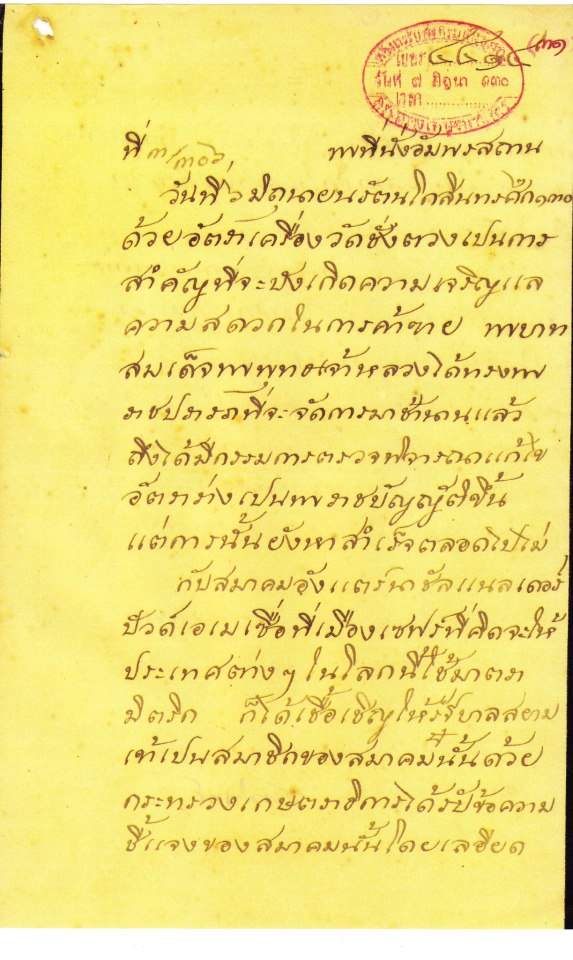 (๓๑)
วันที่ ๗ มิถุนา ๑๓๐
เวลา
ที่ ๓/๓๐๖ พระที่นั่งอัมพรสถาน
วันที่ ๖ มิถุนายน รัตนโกสินทรศึก ๑๓๐
ด้วยอัตราเครื่องวัดชั่งตวงเปนการ
สำคัญที่จะบังเกิดความเจริญแล
ความสดวกในการค้าขาย พระบาท
สมเด็จพระพุทธเจ้าหลวงได้ทรงพระ
ราชปรารภที่จะจัดการมาช้านานแล้ว
ถึงได้มีกรรมการตรวจพิจารณาแก้ไข
อัตราร่างเปนพระราชบัญญัติขึ้น
แต่การนั้นยังหาสำเร็จตลอดไปไม่
กับสมาคมอังแตร์นาชัลแนลเดอร์
ปัวด์เอเมเซื่อที่เมืองเซฟร์ที่คิดจะให้
ประเทศต่างๆ ในโลกนี้ใช้มาตรา
มิตริก ก็ได้เชื้อเชิญให้รัฐบาลสยาม
เข้าเปนสมาชิกของสมาคมนั้นด้วย
กระทรวงเกษตราธิการได้รับข้อความ
ชี้แจงของสมาคมนั้นโดยเลอียด